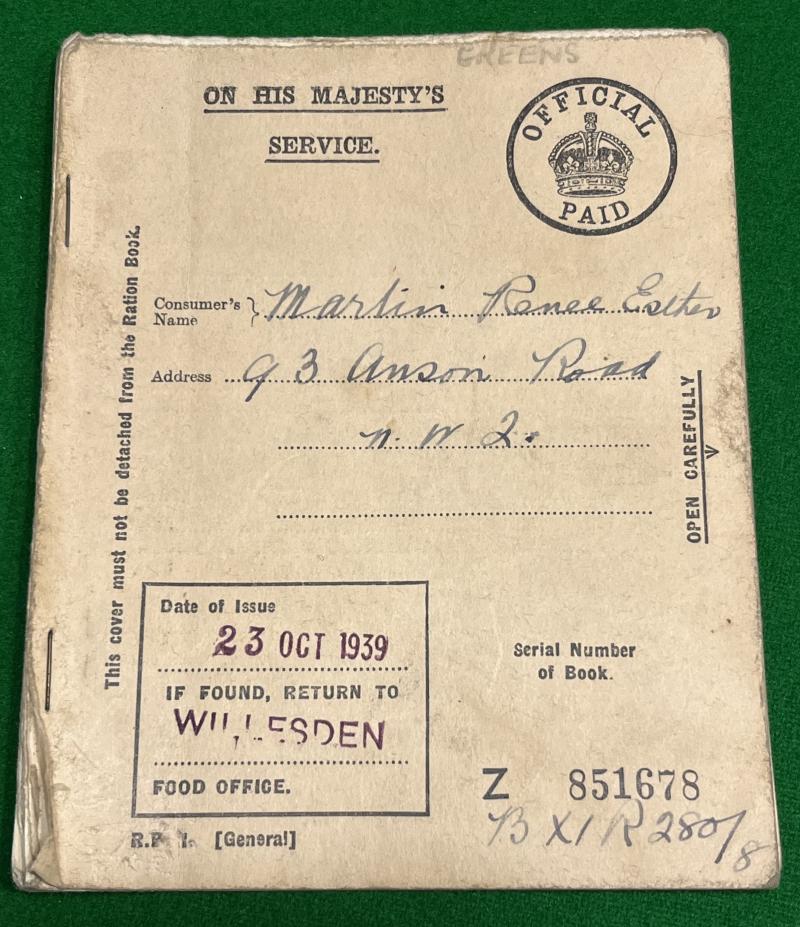 GREENS
ON HIS MAJESTY'S
SERVICE.
OFFICIAL
PAID
This cover must not be detached from the Ration Book.
Consumer's
Name } Martin Renee Esther
Address 93 Anson Road
N. W 2.
OPEN CAREFULLY
Date of Issue
23 OCT 1939
IF FOUND, RETURN TO
WILLESDEN
FOOD OFFICE.
Serial Number
of Book.
Z 851678
B XI R 280/8
R.P. 1. [General]